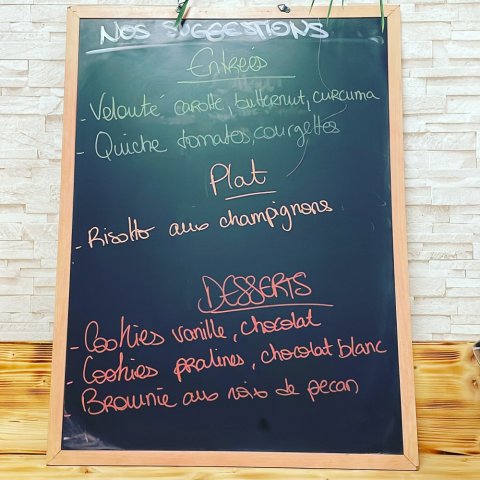 NOS SUGGESTIONS
Entrées
- Velouté carotte, butternut, curcuma
- Quiche tomates, courgettes
Plat
- Risotto aux champignons
DESSERTS
- Cookies vanille, chocolat
- Cookies pralines, chocolat blanc
Brownie aux noix de pecan